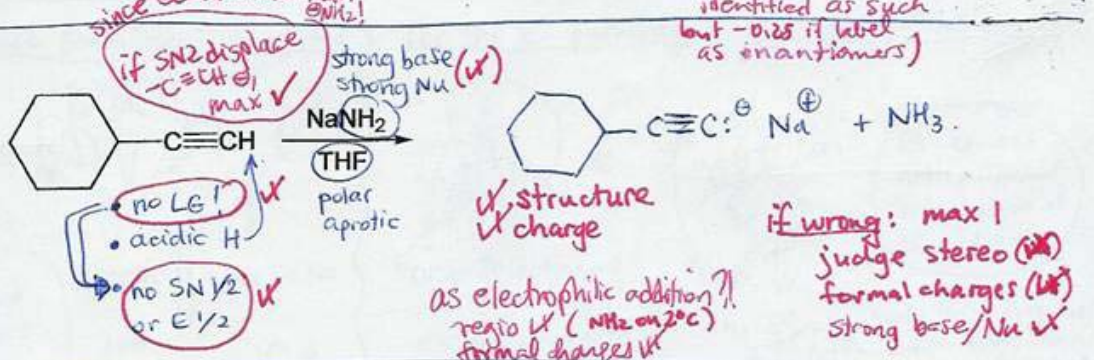 since
⊖NH2!
identified as such
but -0.25 if label
as enantiomers)
if SN2 displace
-C≡CH⊖,
max ✓
strong base
strong Nu (✓)
NaNH2
THF
polar
aprotic
C≡CH
C≡C:⊖ Na⊕ + NH3.
• no LG!
• acidic H
• no SN1/2
or E1/2
✓ structure
✓ charge
as electrophilic addition?!
regio ✓ (NH2 on 2°C)
formal charges ✓
if wrong: max 1
judge stereo
formal charges
strong base/Nu ✓